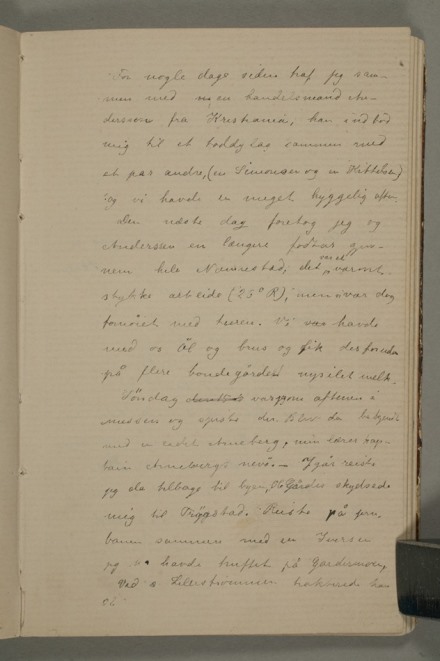 For nogle dage siden traf jeg sam-
men med en handelsmand An-
derssen fra Kristiania, han indbød
mig til et toddyglas sammen med
et par andre, (en Simonsen og en Kittelsen)
og vi havde en meget hyggelig aften.
Den næste dag foretog jeg og
Anderssen en længere fodtur gjen-
nem hele Nannestad; det var et varmt
stykke arbeide (25° R), men jeg var dog
fornøiet med turen. Vi havde
med os Öl og brus og fik desforuden
på flere bondegårde nysilet melk.
Söndag var jeg om aftenen i
messen og spiste der blev da bekjendt
med en kadet Anneberg, min lærer kap-
tain Annebergs nevö. — Igår reiste
jeg da tilbage til byen, skydsede
mig til Trögstad. Reiste på jern-
banen sammen med en Iversen
jeg havde truffet på Gardermoen,
Ved Lillestrømmen han